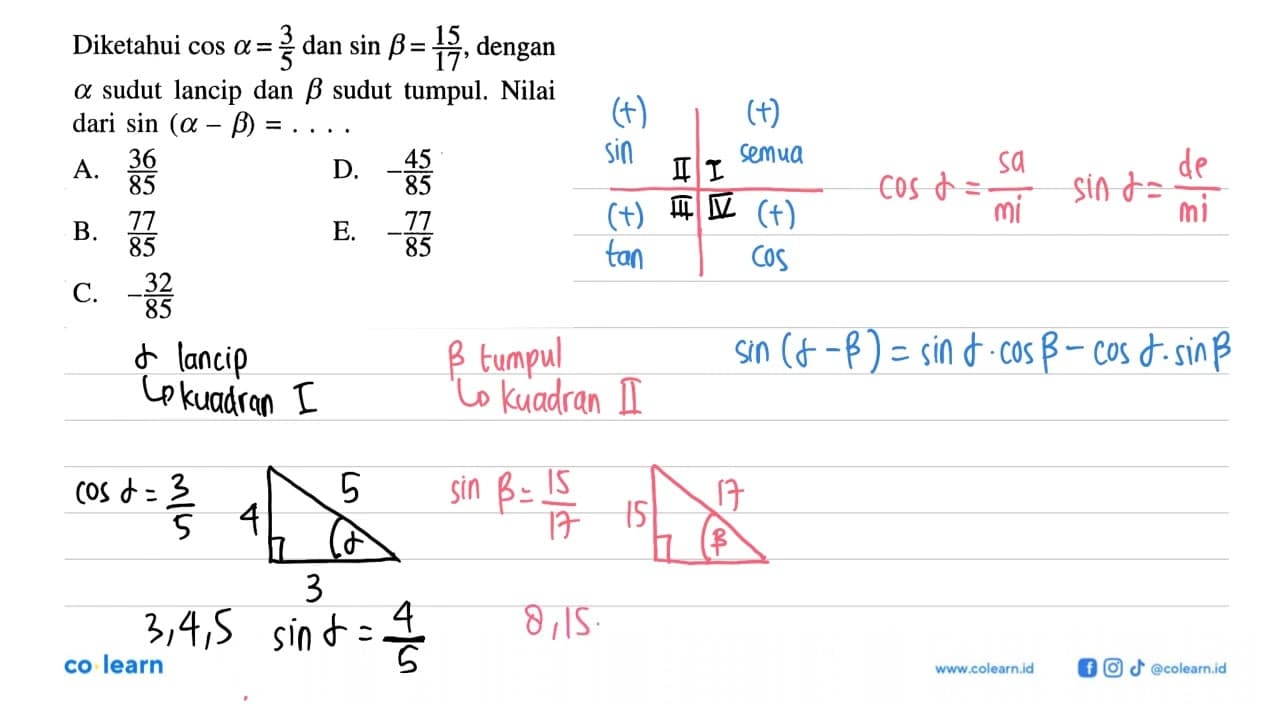 Diketahui cos α = 3/5 dan sin β = 15/17, dengan
α sudut lancip dan β sudut tumpul. Nilai
dari sin (α – β) = . . . .
A. 36/85 D. –45/85
B. 77/85 E. –77/85
C. –32/85
(+) sin II
I (+) semua
(+) tan III
IV (+) cos
cos α = sa/mi sin α = de/mi
α lancip
↳ kuadran I
β tumpul
↳ kuadran II
sin (α – β) = sin α . cos β – cos α . sin β
cos α = 3/5
4 5 α 3
3, 4, 5 sin α = 4/5
sin β = 15/17
15 17 β
8, 15.
co learn
www.colearn.id @colearn.id